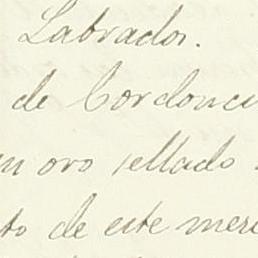 Labrador.
de Cordonci
en oro sellado
to de este mer